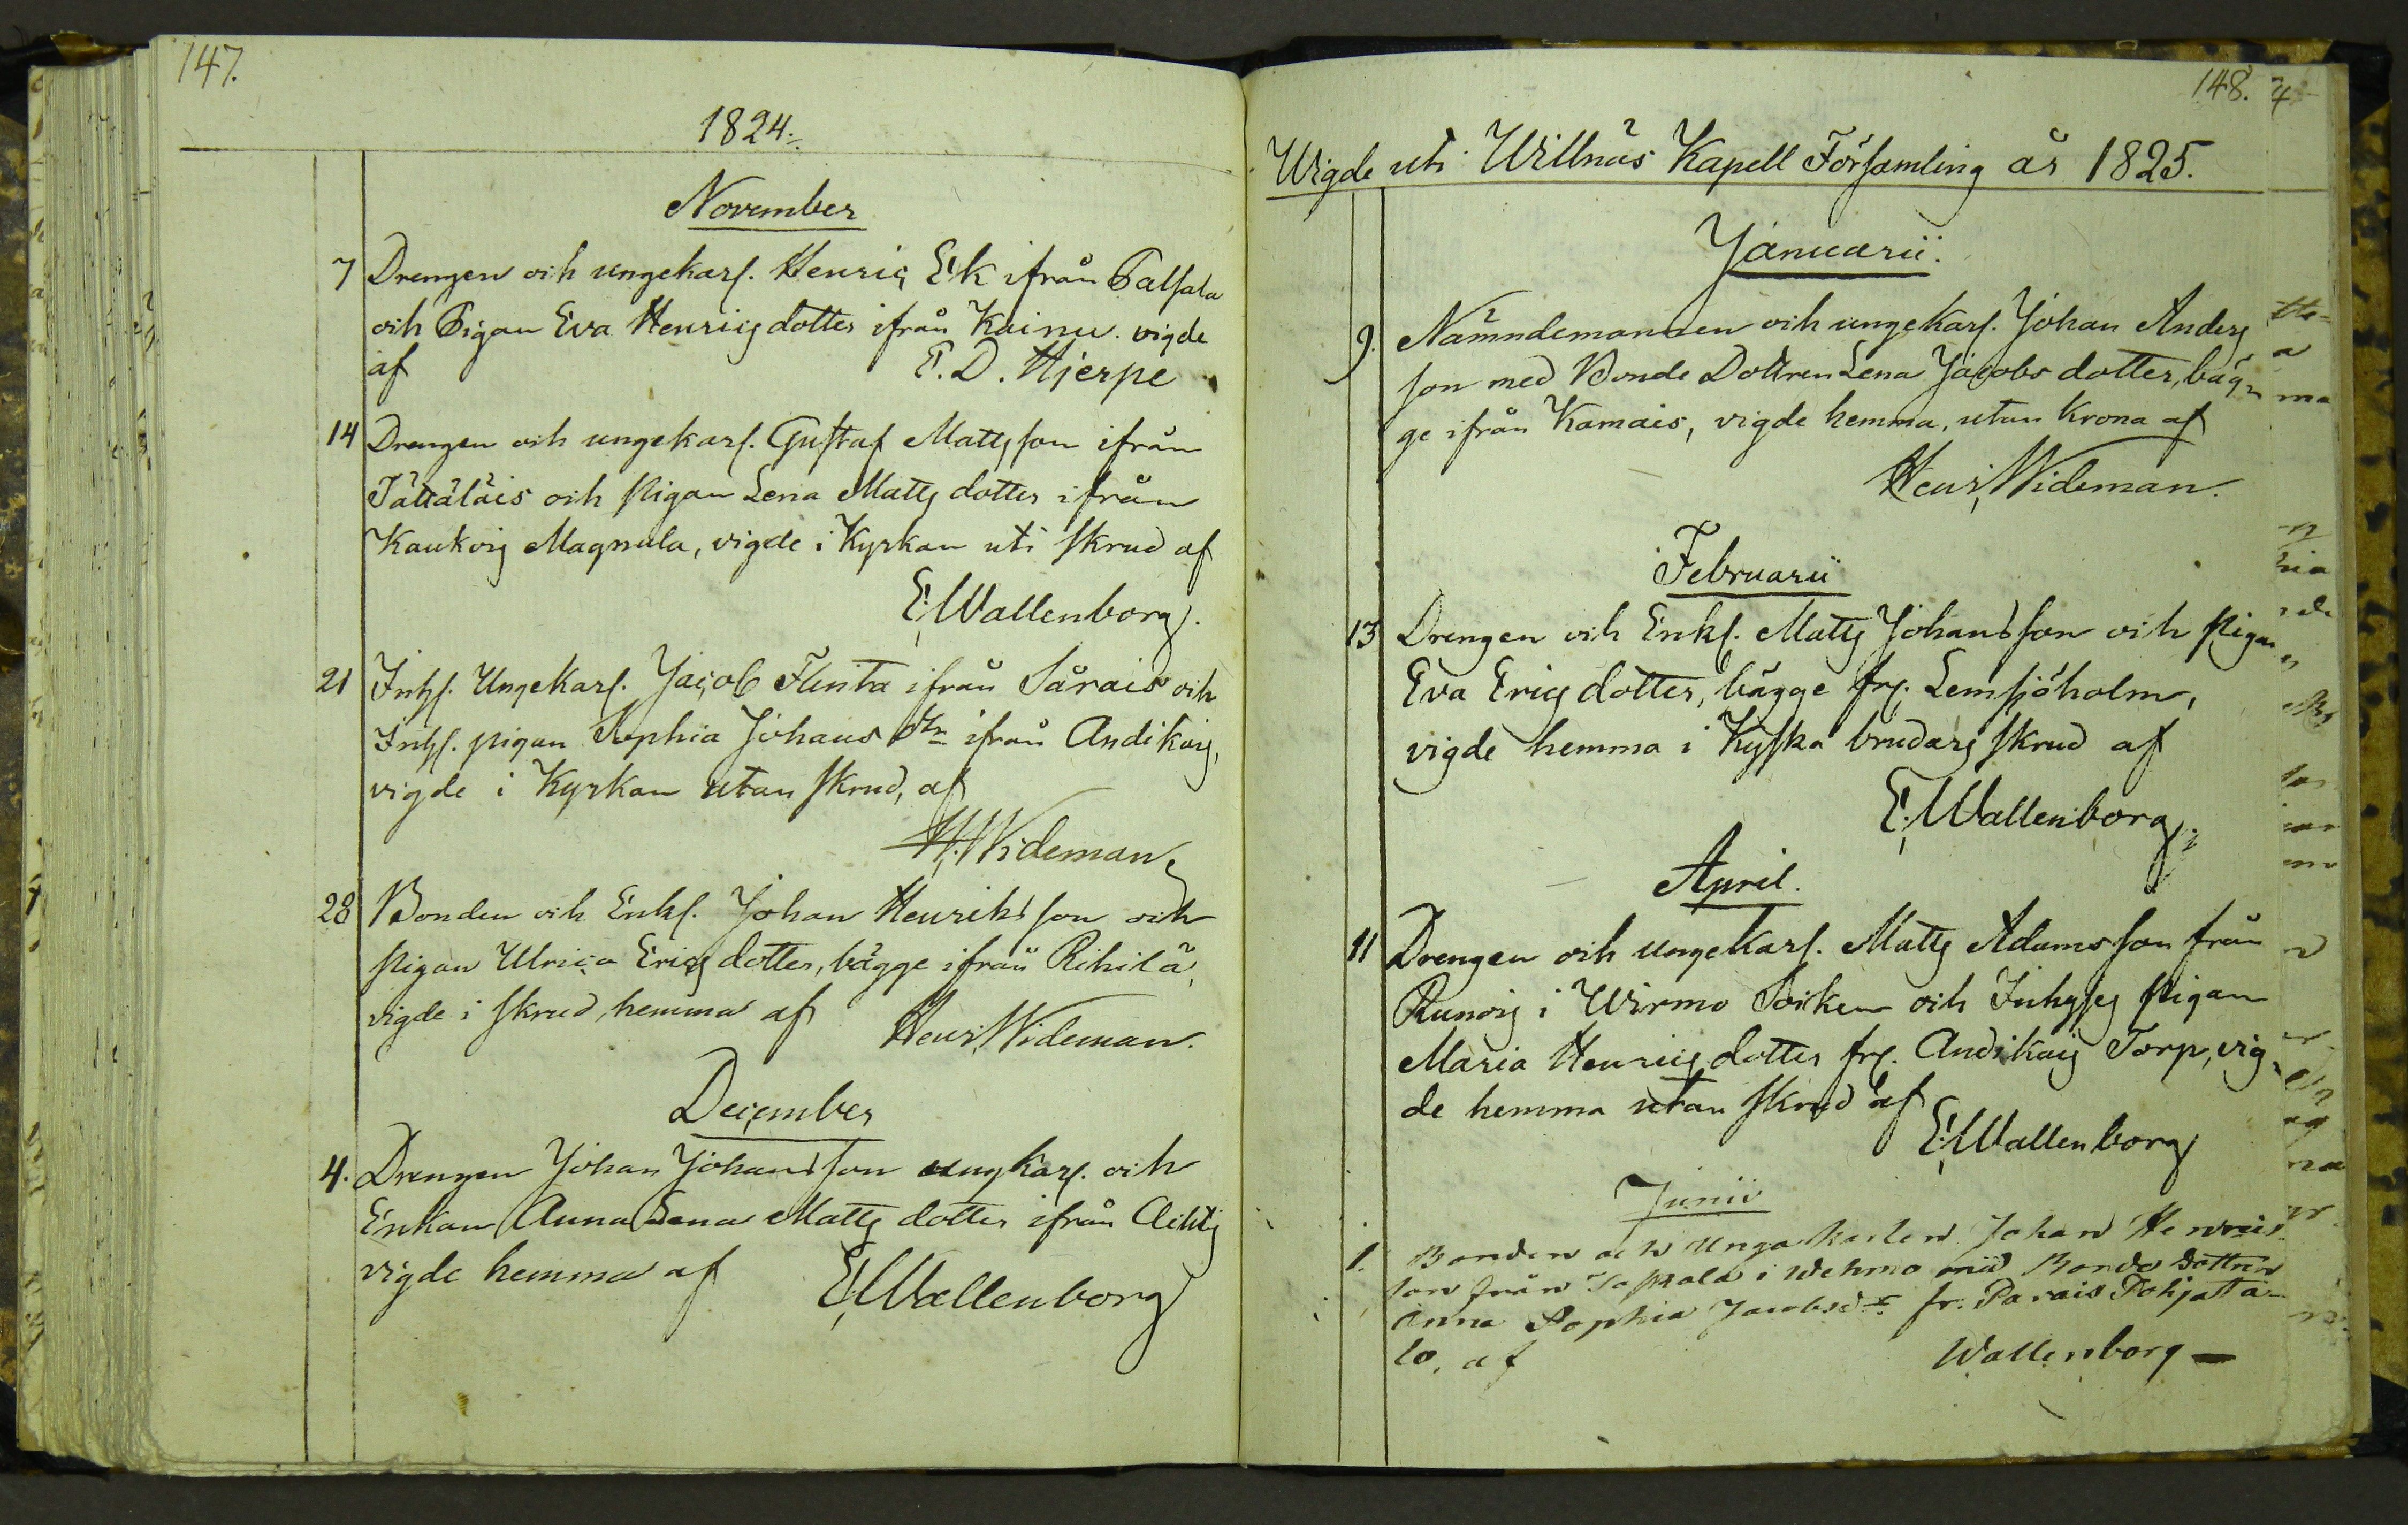 147.
1824.
November
7 Drengen och ungekarl. Henric Ek ifrån Palsala
och Pigan Eva Henricsdotter ifrån Kainu. vigde
af E. D. Hjerpe
14 Drengen och ungekarl. Gustaf Matts son ifrån
Tättäläis och Pigan Lena Matts dotter ifrån
Kaukois Magnula, vigde i Kyrkan uti skrud af
E. Wallenborg.
21 Inhs. Ungekarl. Jacob Flinta ifrån Särais och
Inhs. pigan Sophia Johans dtr ifrån Andikais,
vigde i Kyrkan utan skrud, af
H. Wideman
28 Bonden och Enkl. Johan Henriksson och
pigan Ulrica Erics dotter, bägge ifrån Rihilä,
vigde i skrud, hemma af Henr. Wideman.
December
4. Drengen Johan Johansson ungkarl. och
Enkan Anna Lena Matts dotter ifrån
vigde hemma af E. Wallenborg
148.
Wigde uti Willnäs Kapell Församling år 1825.
Januarii.
9. Nämndemannen och ungekarl. Johan Anders
son med Bonde Dottren Lena Jacobs dotter, bäg-
ge ifrån Kamais, vigde hemma, utan Krona af
Henr. Wideman.
Februarii
13 Drengen och Enkl. Matts Johansson och Pigan
Eva Erics dotter, bägge fr. Lemsjöholm,
vigde hemma i Kyska brudars skrud af
E. Wallenborg.
April.
11 Drengen och ungekarl. Matts Adams son från
Runois i Wirmo Socken och Inhyses Pigan
Maria Henrics dotter fr. Andikais Torp, vig-
de hemma utan skrud af
E. Wallenborg
Junii
1. Bonden och Ungakarlen Johan Henrics
son från i Wehmo med Bonde dottren
Anna Sophia Jacobsdr fr. Parais Pohjatta-
lo, af Wallenborg